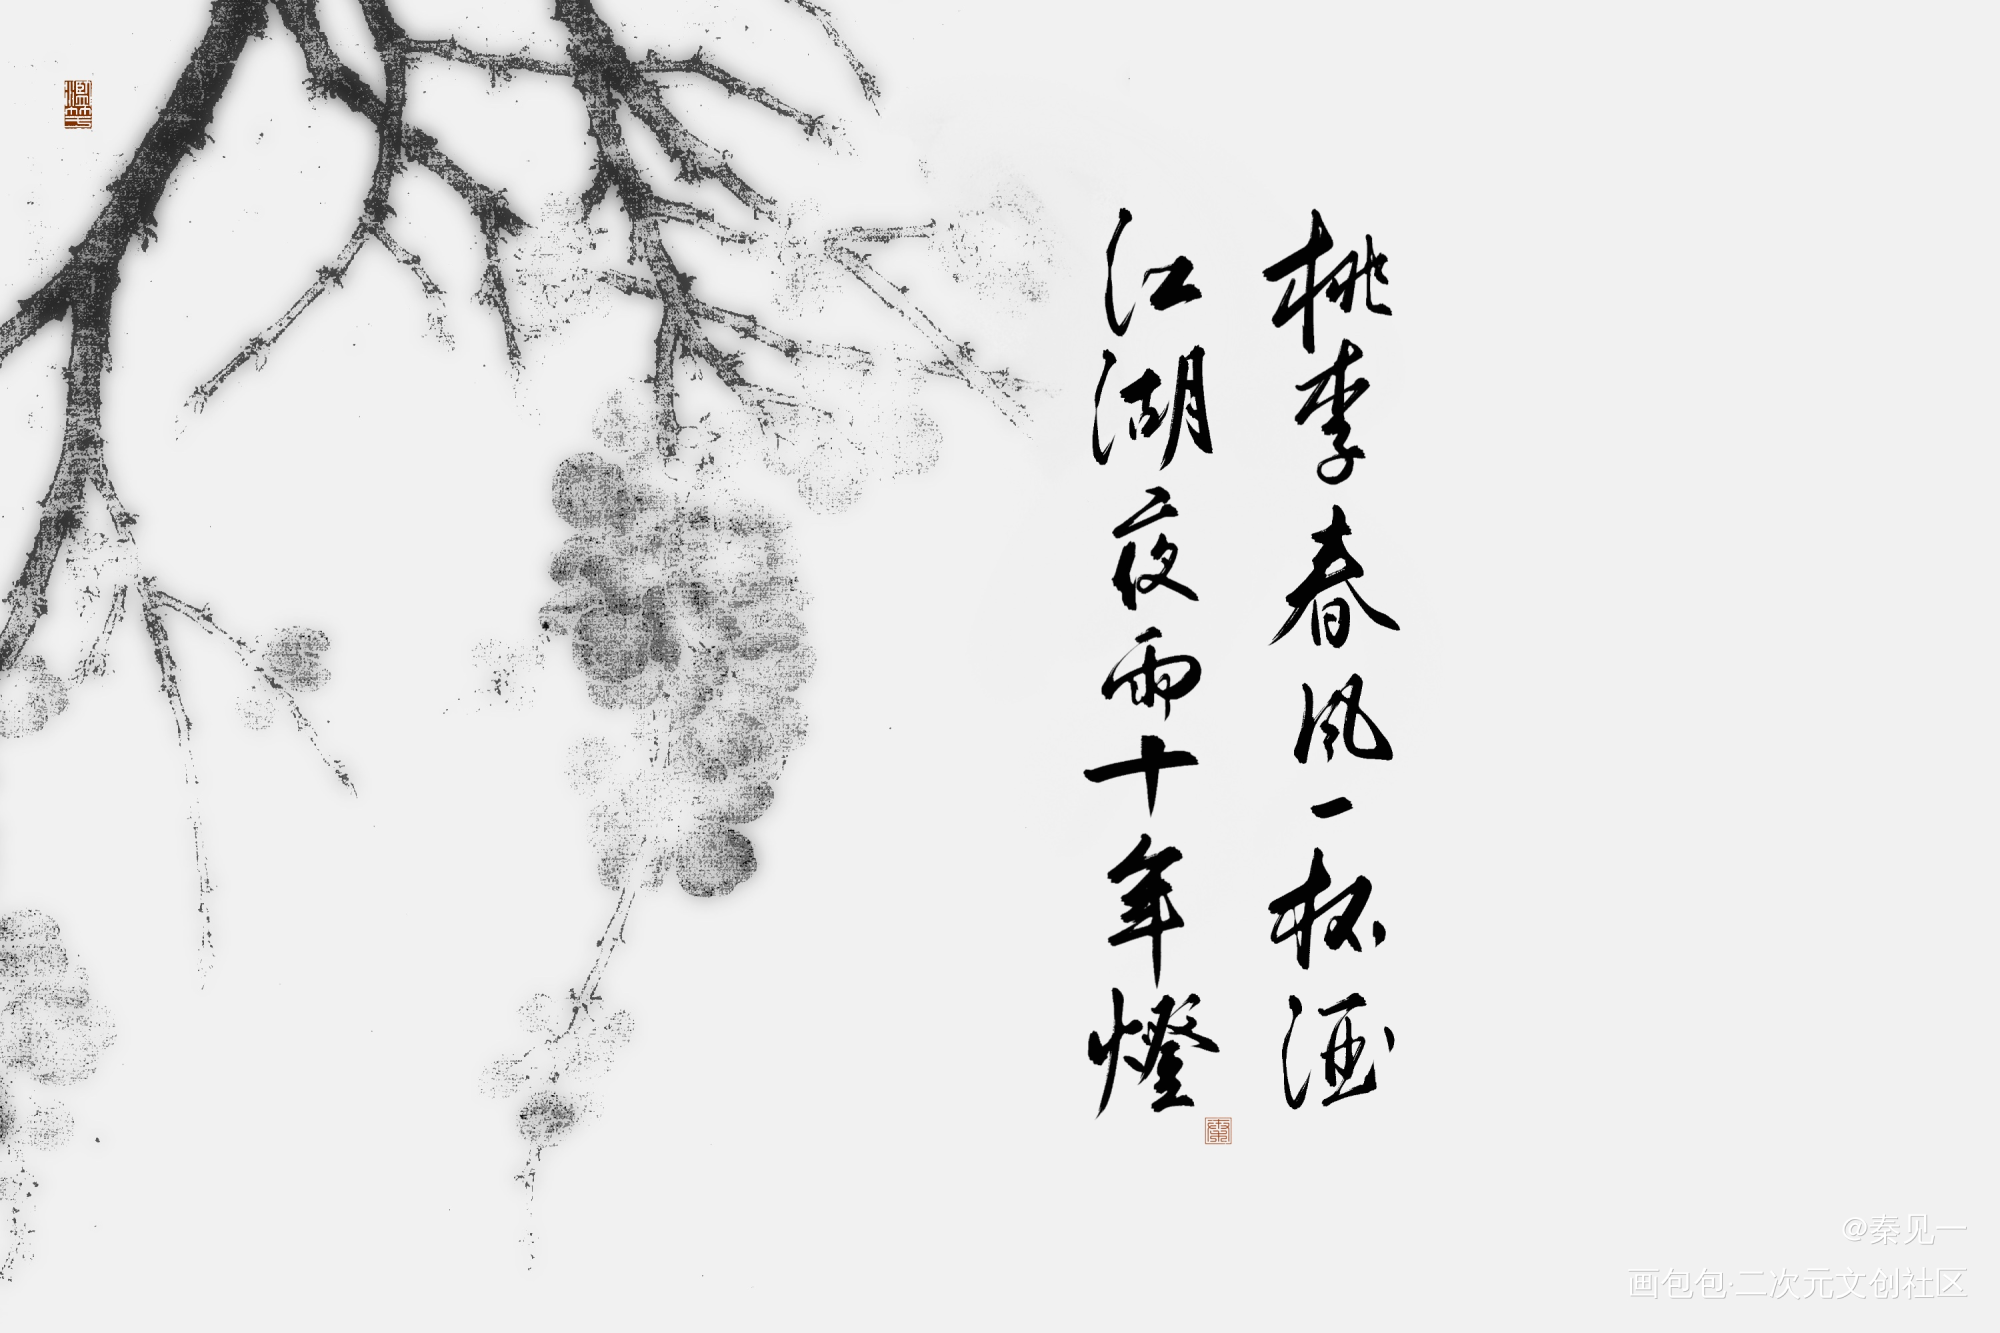 桃李春风一杯酒
江湖夜雨十年燈
@秦见一
画包包·二次元文创社区